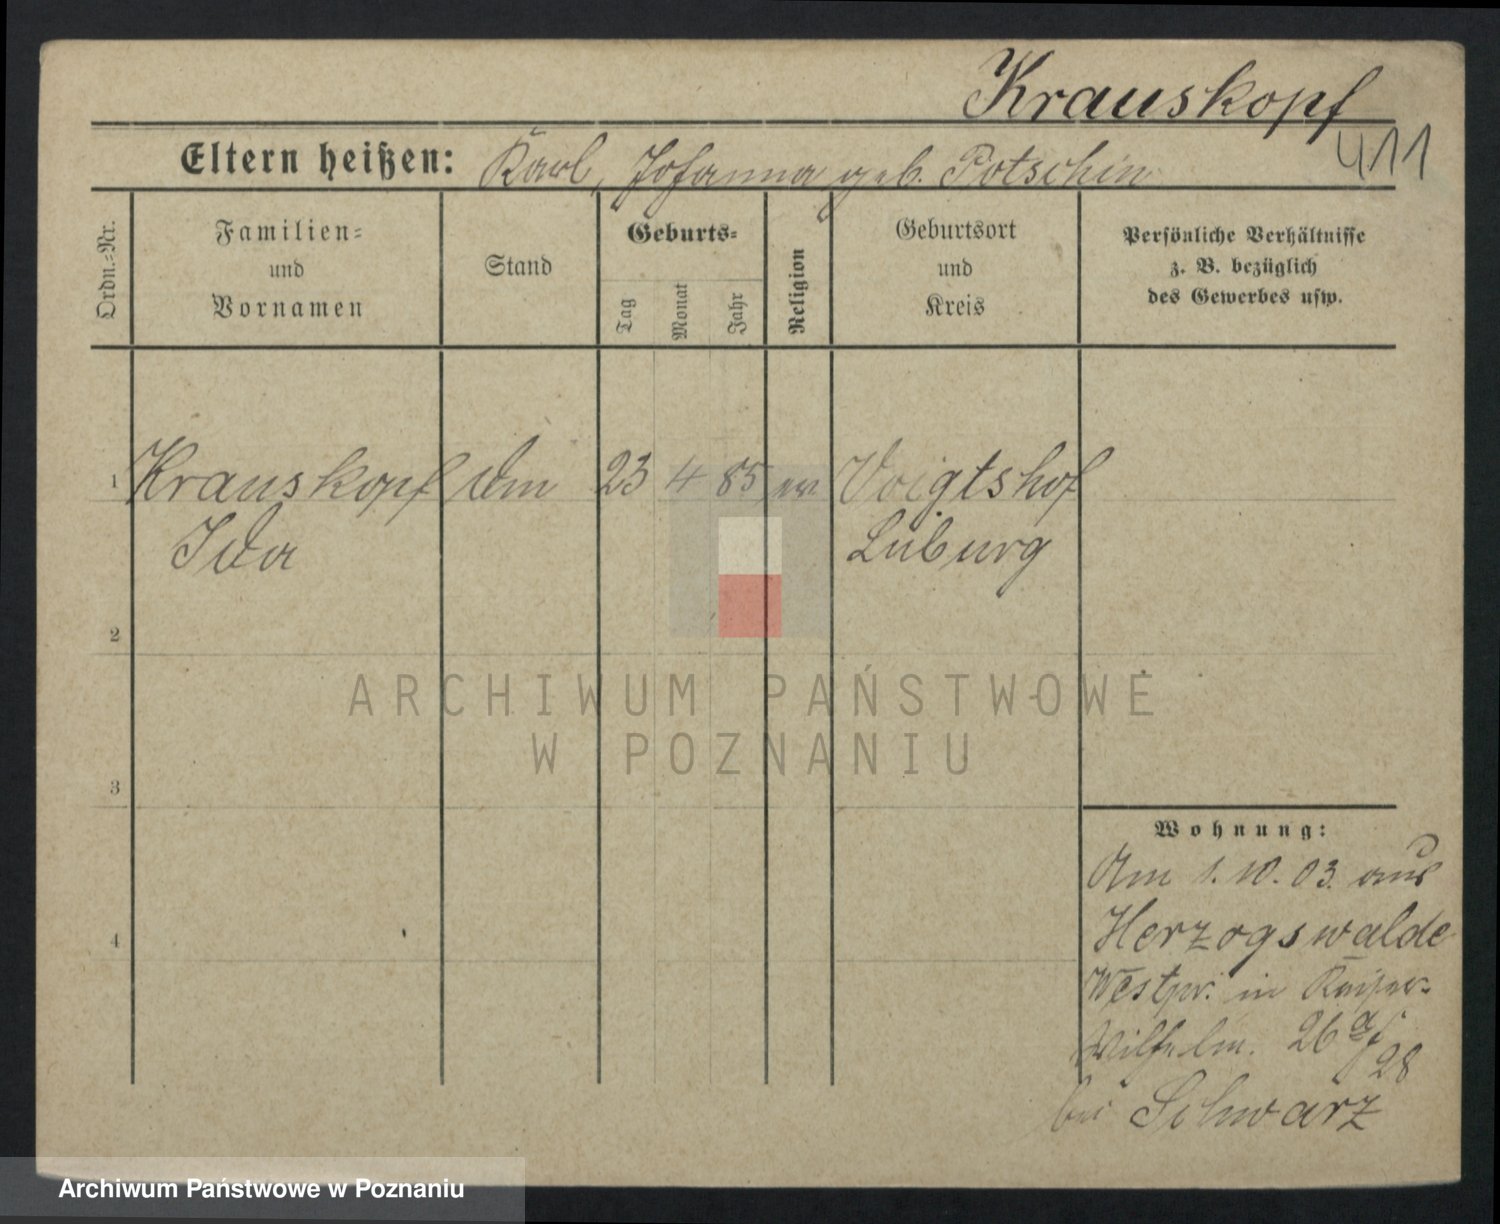 Krauskopf
411
Eltern heißen: Karl, Johanna geb. Potschin
Ordn.-Nr.
Familien-
und
Vornamen
Stand
Geburts-
Tag
Monat
Jahr
Religion
Geburtsort
und
Kreis
Persönliche Verhältnisse
z. B. bezüglich
des Gewerbes usw.
1 Krauskopf 23 4 85 ev Voigtshof
Ida
Lüburg
2
3
4
ARCHIWUM PAŃSTWOWE
W POZNANIU
Wohnung:
Am 1. 10. 03. aus
Herzogswalde
Westpr. in Kaiser-
Wilhelm. 26 a/28
bei Schwarz
Archiwum Państwowe w Poznaniu